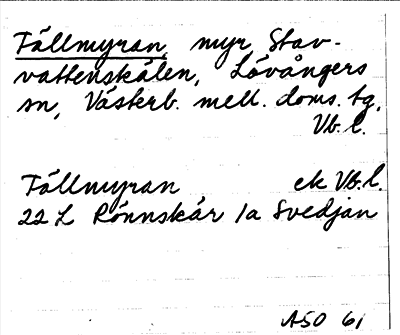 Fällmyran, myr Stav-
vattenskälen, Lövångers
sn, Västerb. mell. doms. tg,
Vb. l.
Fällmyran ek Vb. l.
22 L Rönnskär 1a Svedjan
A50 61